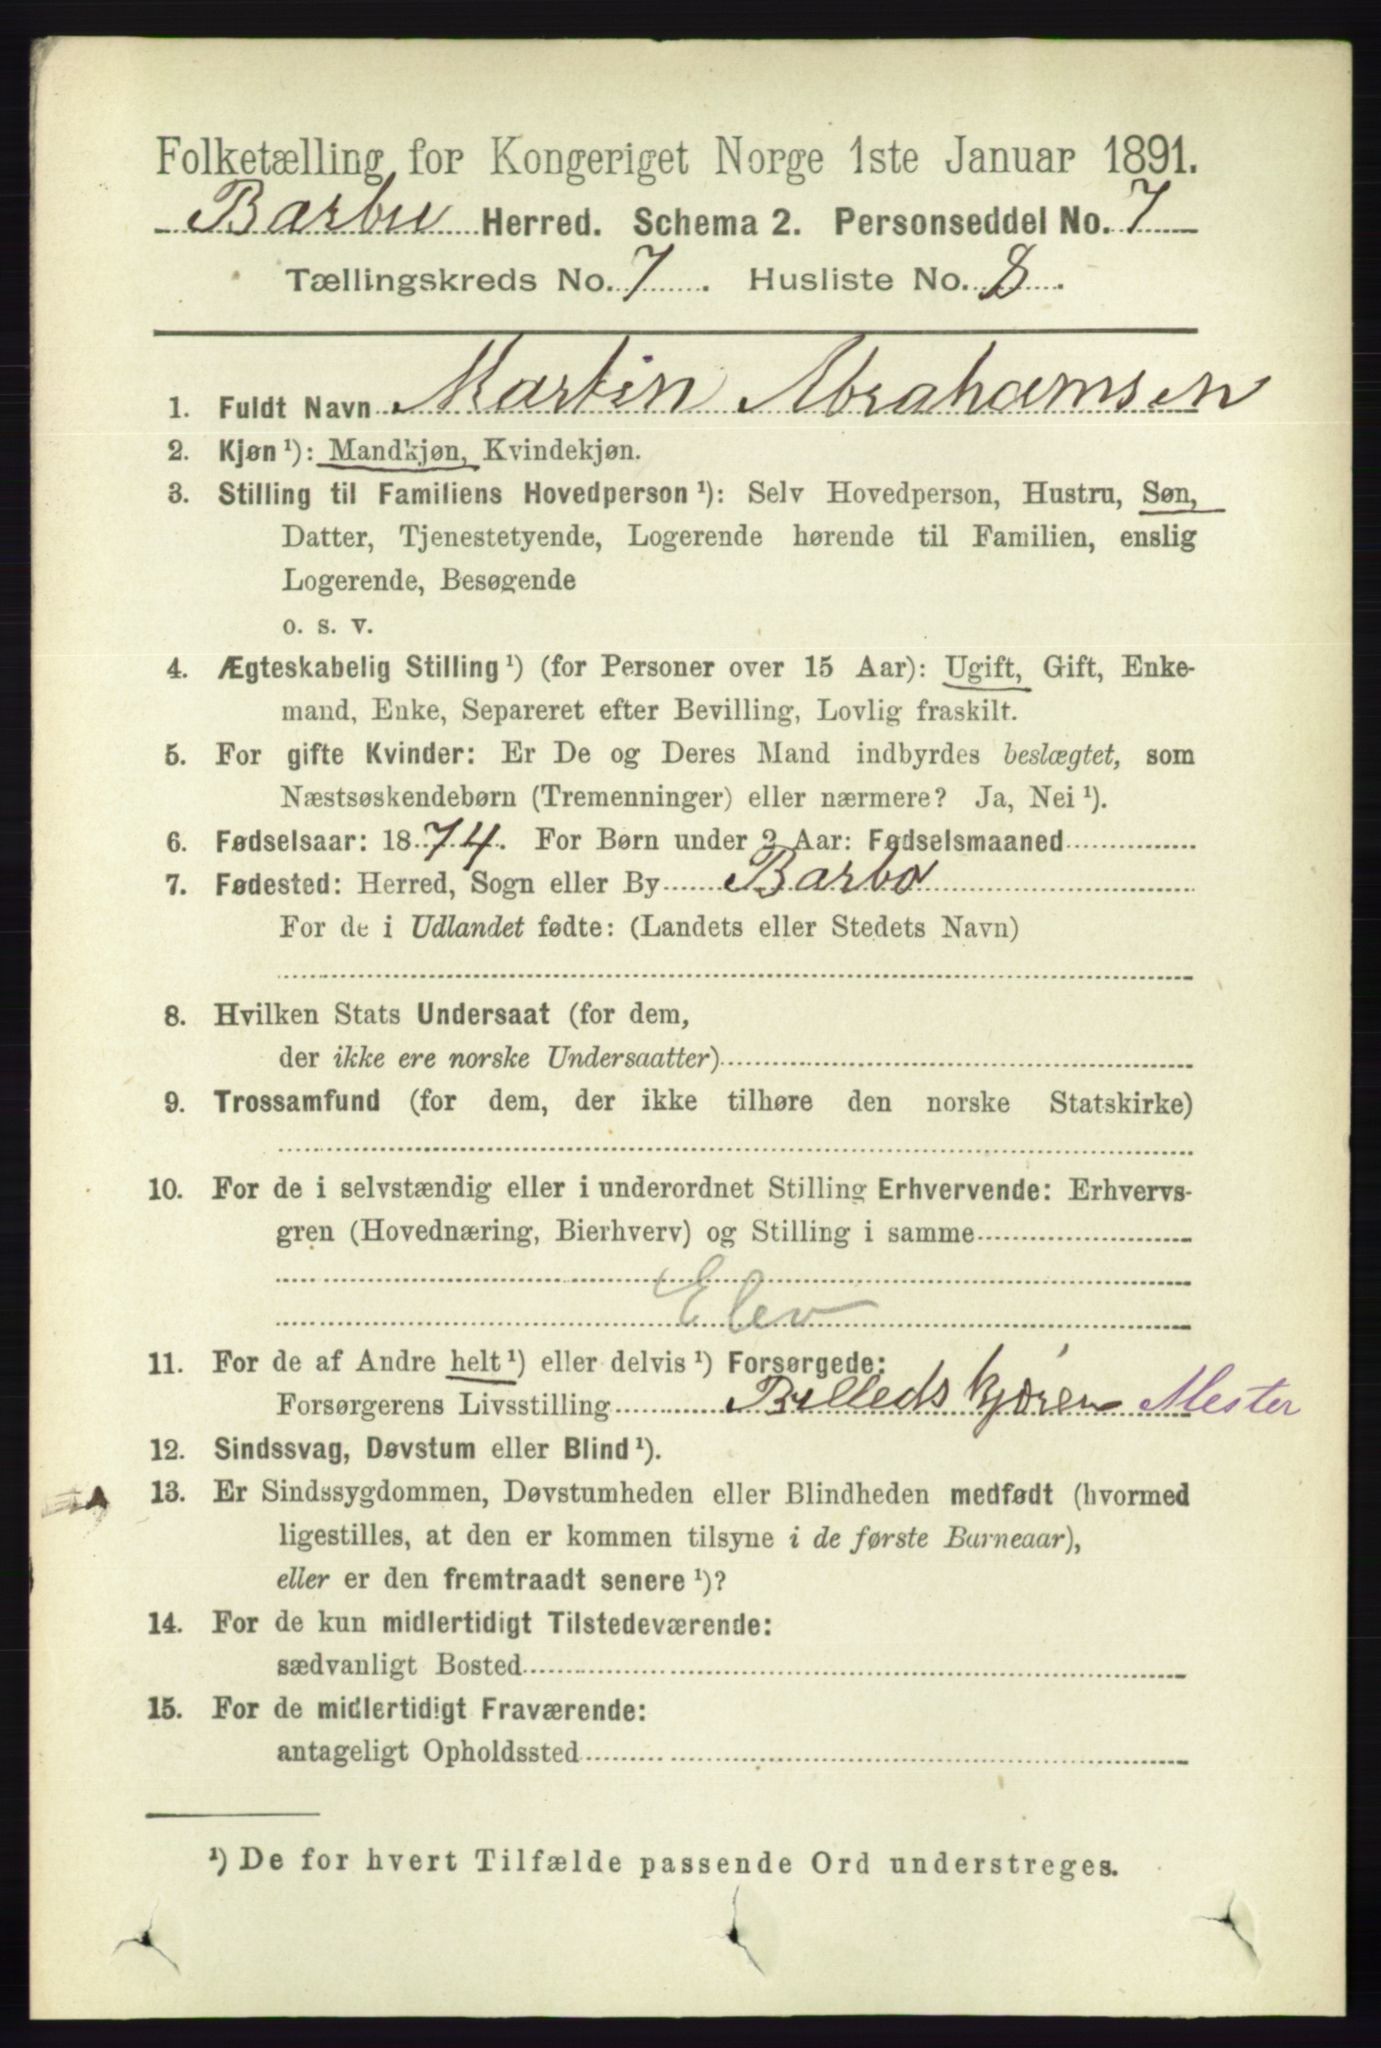 Folketælling for Kongeriget Norge 1ste Januar 1891.
Barbu Herred. Schema 2. Personseddel No. 7
Tællingskreds No. 7. Husliste No. 8.
1. Fuldt Navn Martin Abrahamsen
2. Kjøn ¹): Mandkjøn, Kvindekjøn.
3. Stilling til Familiens Hovedperson ¹): Selv Hovedperson, Hustru, Søn,
Datter, Tjenestetyende, Logerende hørende til Familien, enslig
Logerende, Besøgende
o. s. v.
4. Ægteskabelig Stilling ¹) (for Personer over 15 Aar): Ugift, Gift, Enke-
mand, Enke, Separeret efter Bevilling, Lovlig fraskilt.
5. For gifte Kvinder: Er De og Deres Mand indbyrdes beslægtet, som
Næstsøskendebørn (Tremenninger) eller nærmere? Ja, Nei ¹).
6. Fødselsaar: 1874. For Børn under 2 Aar: Fødselsmaaned
7. Fødested: Herred, Sogn eller By Barbo
For de i Udlandet fødte: (Landets eller Stedets Navn)
8. Hvilken Stats Undersaat (for dem,
der ikke ere norske Undersaatter)
9. Trossamfund (for dem, der ikke tilhøre den norske Statskirke)
10. For de i selvstændig eller i underordnet Stilling Erhvervende: Erhvervs-
gren (Hovednæring, Bierhverv) og Stilling i samme
Elev
11. For de af Andre helt ¹) eller delvis ¹) Forsørgede:
Forsørgerens Livsstilling Billedskjærer Mester
12. Sindssvag, Døvstum eller Blind ¹).
13. Er Sindssygdommen, Døvstumheden eller Blindheden medfødt (hvormed
ligestilles, at den er kommen tilsyne i de første Barneaar),
eller er den fremtraadt senere ¹)?
14. For de kun midlertidigt Tilstedeværende:
sædvanligt Bosted
15. For de midlertidigt Fraværende:
antageligt Opholdssted
¹) De for hvert Tilfælde passende Ord understreges.